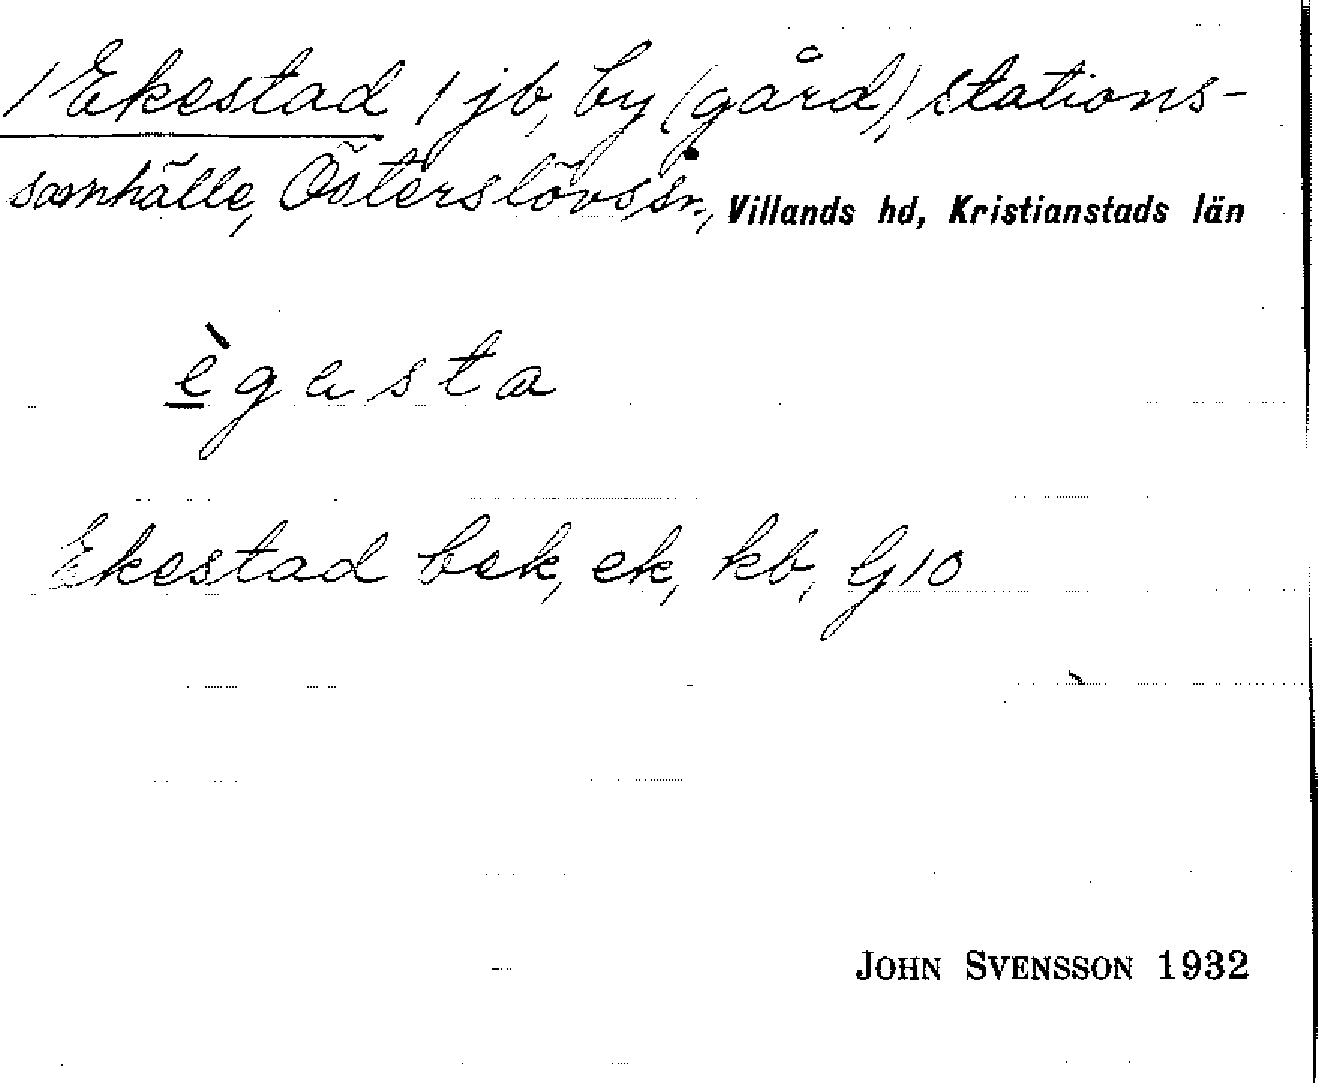 /Ekestad/ jb, by (gård), stations-
samhälle, Österslövs sn, Villands hd, Kristianstads län
ègasta
Ekestad bek, ek, kb, G10
JOHN SVENSSON 1932